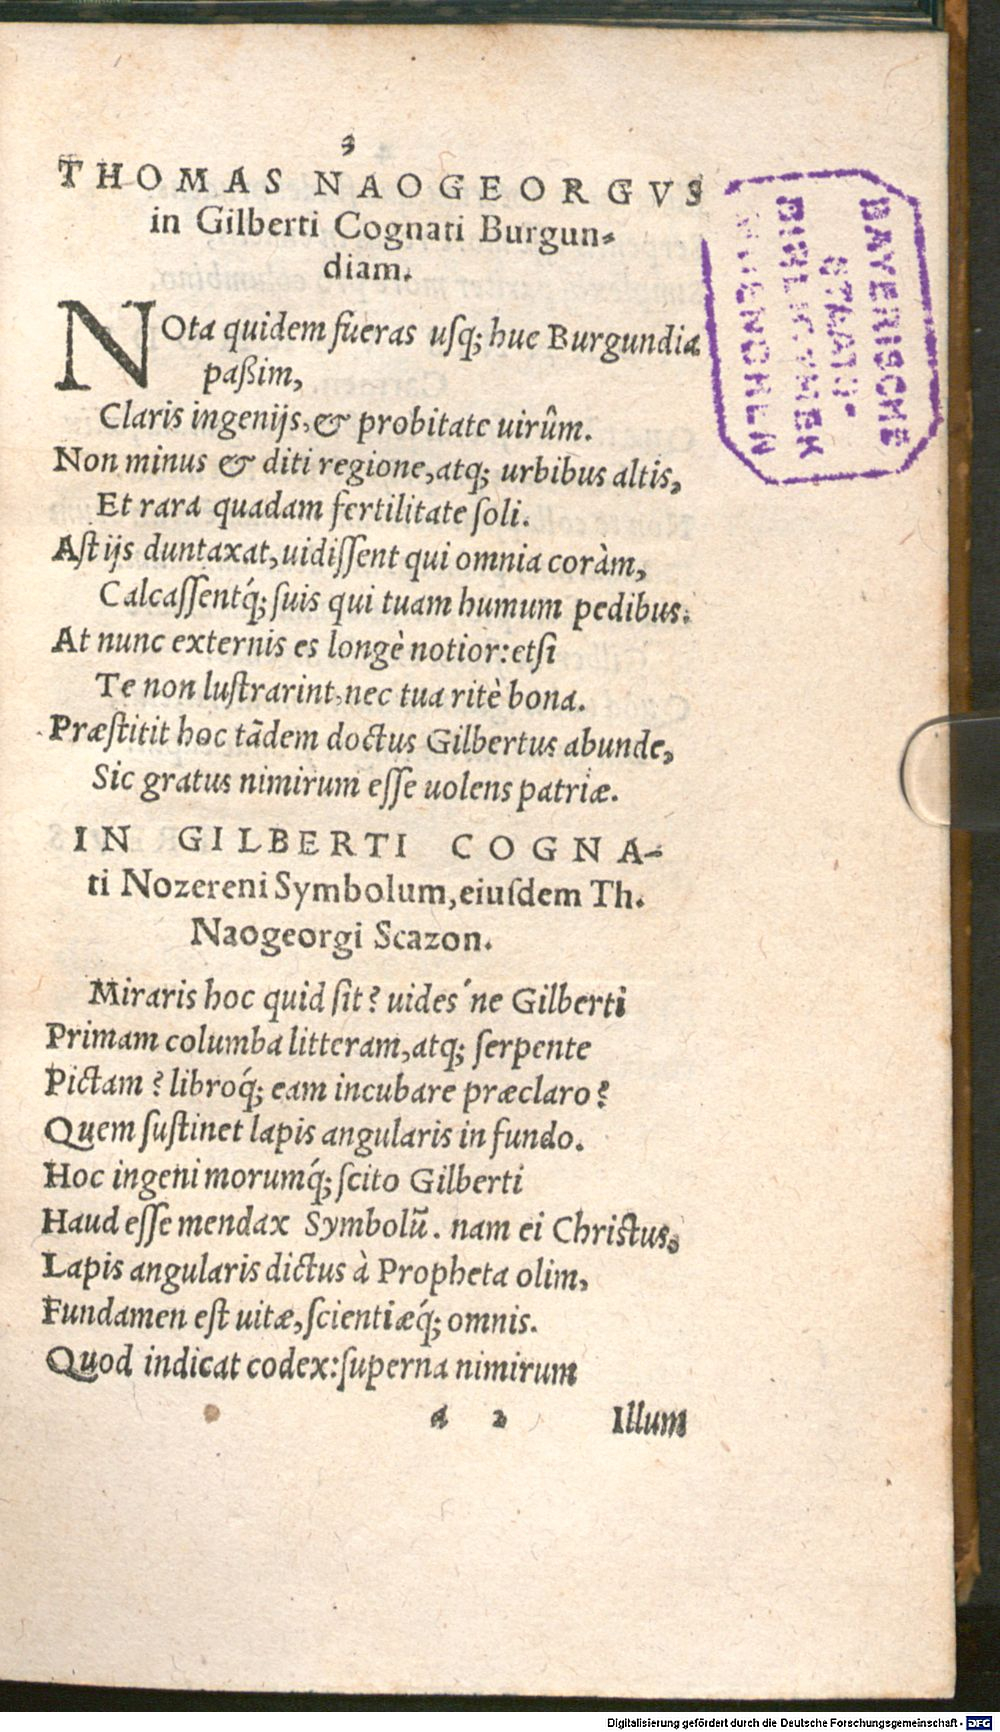 3
THOMAS NAOGEORGVS
in Gilberti Cognati Burgun-
diam.
NOta quidem fueras uſq; huc Burgundia
paßim,
Claris ingenijs, & probitate uirûm.
Non minus & diti regione, atq; urbibus altis,
Et rara quadam fertilitate ſoli.
Aſt ijs duntaxat, uidiſſent qui omnia coràm,
Calcaſſentq́; ſuis qui tuam humum pedibus.
At nunc externis es longè notior: etſi
Te non luſtrarint, nec tua ritè bona.
Præſtitit hoc tādem doctus Gilbertus abunde,
Sic gratus nimirum eſſe uolens patriæ.
IN GILBERTI COGNA-
ti Nozereni Symbolum, eiuſdem Th.
Naogeorgi Scazon.
Miraris hoc quid ſit? uides´ne Gilberti
Primam columba litteram, atq; ſerpente
Pictam? libroq́; eam incubare præclaro?
Quem ſuſtinet lapis angularis in fundo.
Hoc ingeni morumq́; ſcito Gilberti
Haud eſſe mendax Symbolū. nam ei Chriſtus,
Lapis angularis dictus à Propheta olim,
Fundamen eſt uitæ, ſcientiæq́; omnis.
Quod indicat codex: ſuperna nimirum
a 2 Illum
BAYERISCHE
STAATS-
BIBLIOTHEK
MUENCHEN
Digitalisierung gefördert durch die Deutsche Forschungsgemeinschaft - DFG